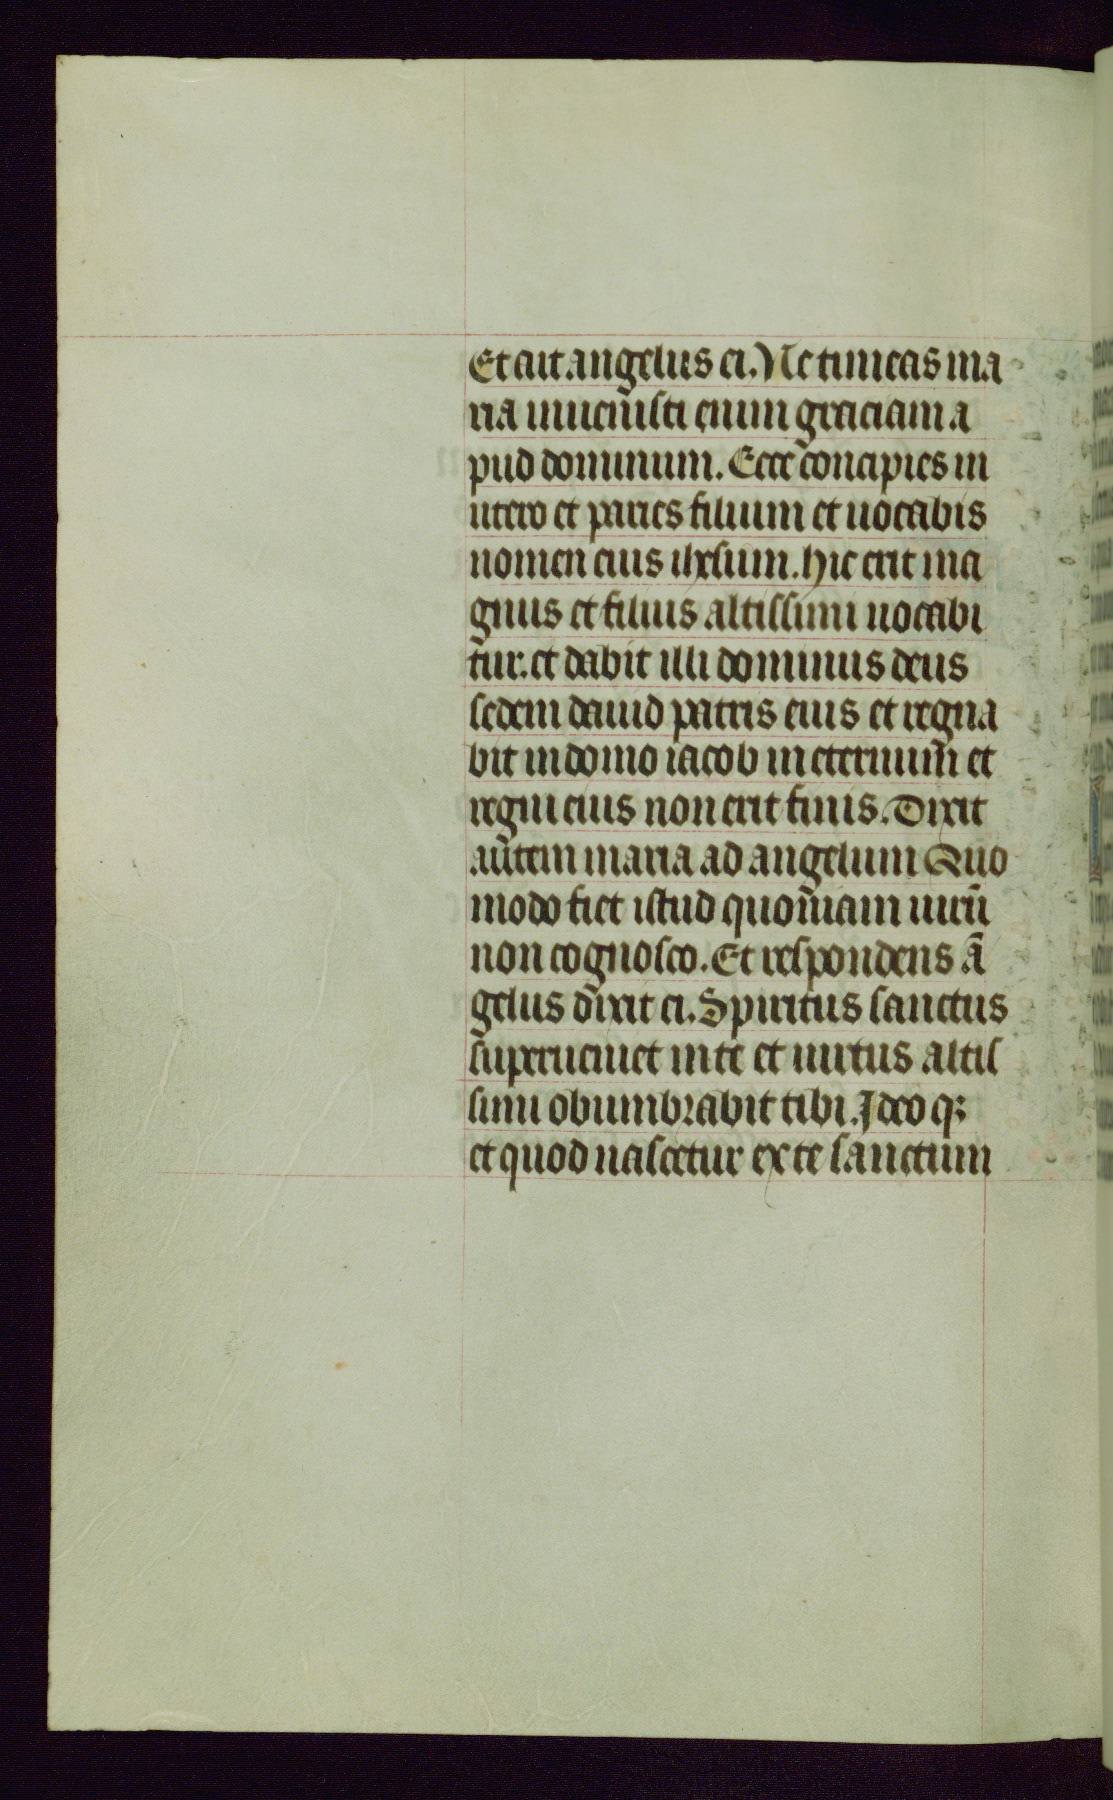 Et ait angelus ei. Ne timeas ma
ria inuenisti enim graciam a
pud dominum. Ecce concipies in
utero et paries filium et uocabis
nomen eius ihesum. Hic erit ma
gnus et filius altissimi uocabi
tur. et dabit illi dominus deus
sedem dauid patris eius et regna
bit in domo iacob in eternum et
regni eius non erit finis. Dixit
autem maria ad angelum Quo
modo fiet istud quoniam uirū
non cognosco. Et respondens ā
gelus dixit ei. Spiritus sanctus
superueniet in te et uirtus altis
simi obumbrabit tibi. Ideo qꝫ
et quod nascetur ex te sanctum